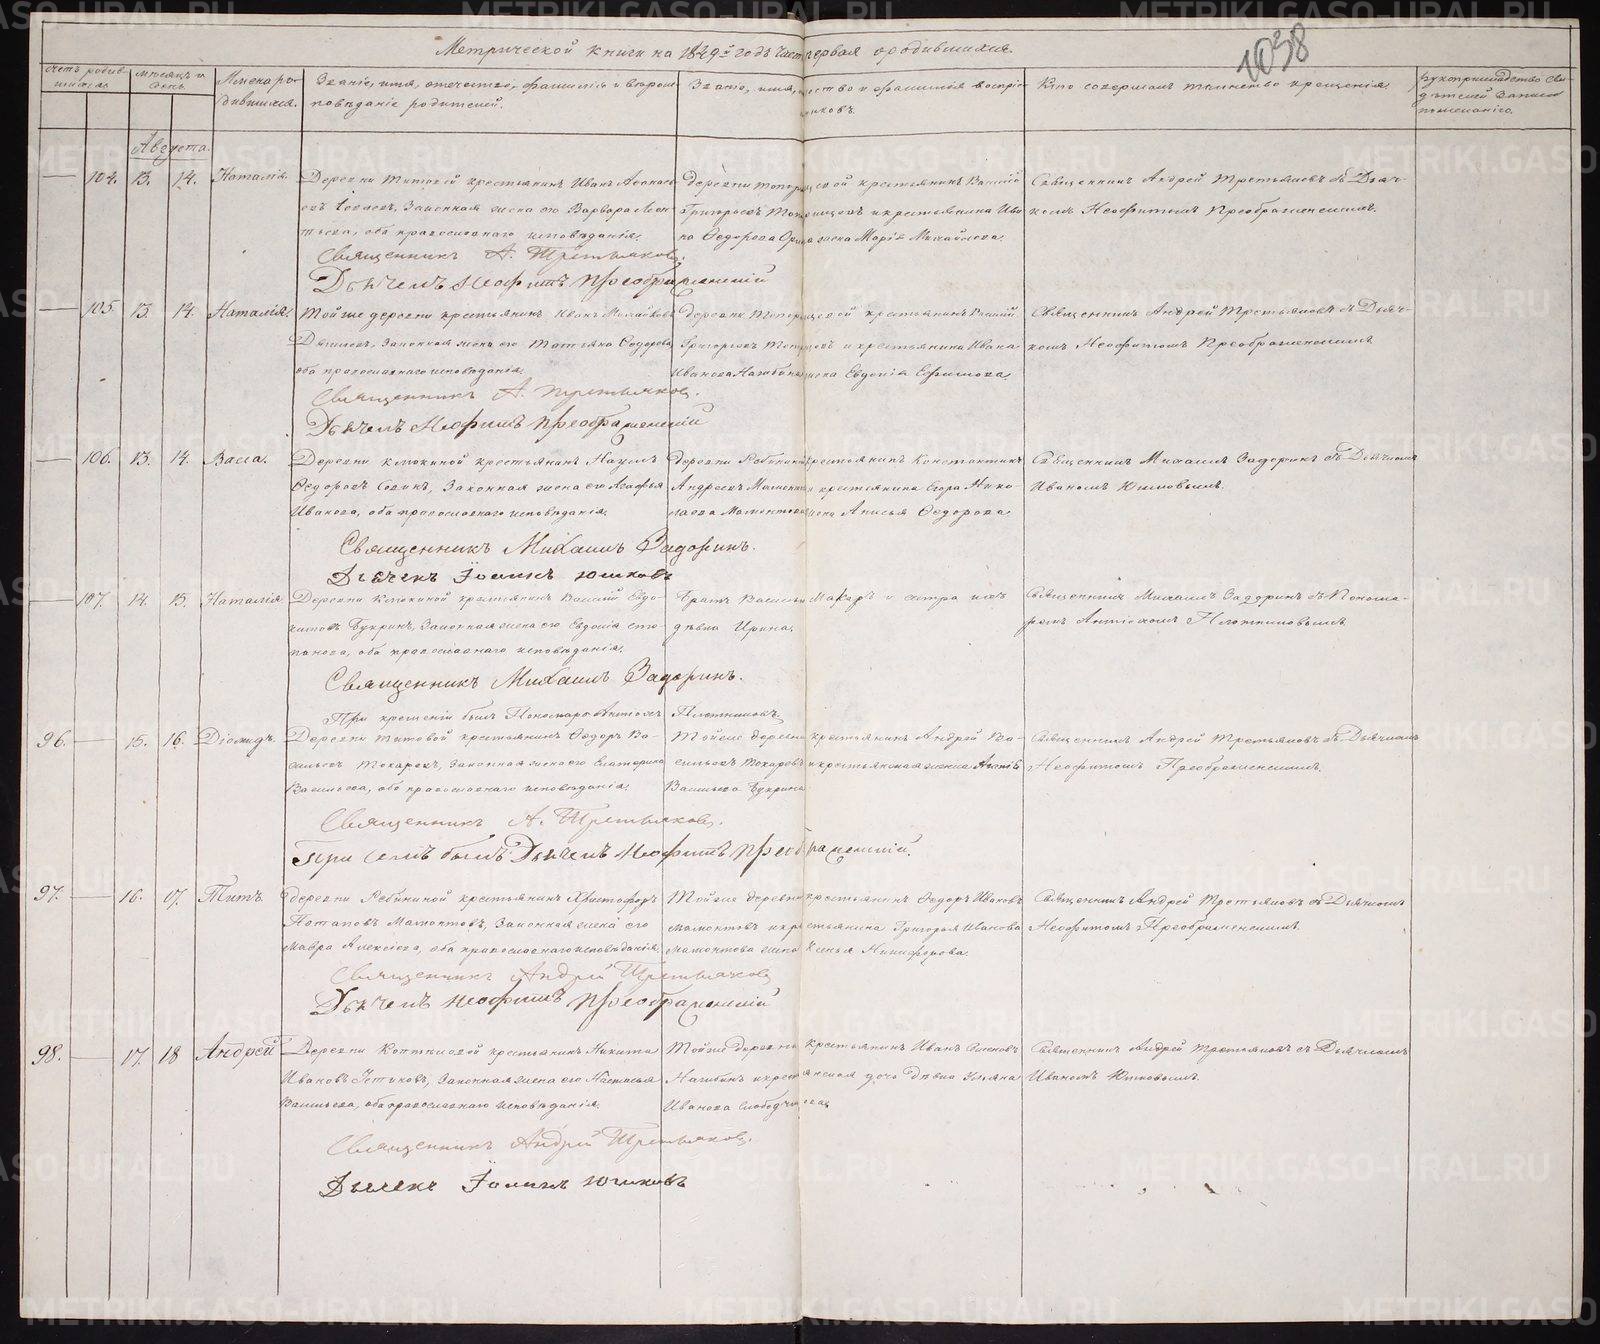 Метрической книги на 1849й годъ часть первая о родившихся.
1038
Счетъ родившихся.
Мѣсяцъ и день.
Имена родившихся.
Званіе, имя, отечество, фамилія и вѣроисповѣданіе родителей.
Званіе, имя, отечество и фамилія воспріемниковъ.
Кто совершалъ таинство крещенія.
Рукоприкладство свидѣтелей записи по желанію.
Августа.
104. 13. 14. Наталія.
Деревни Титовой крестьянинъ Иванъ
законная жена его Варвара Леон-
тьева, оба православнаго исповѣданія.
Деревни крестьянинъ Василій
Григорьевъ и крестьянина Ива-
на Ѳедорова жена Марія Михайлова.
Священникъ Андрей Третьяковъ съ Дьяч-
комъ Неофитомъ Преображенскимъ.
Священникъ А. Третьяковъ.
Дьячекъ Неофитъ Преображенскій
105. 13. 14. Наталія.
Тойже деревни крестьянинъ Иванъ
законная жена его Татьяна Ѳедорова
оба православнаго исповѣданія.
Деревни крестьянинъ Василій
Григорьевъ и крестьянина Ивана
Иванова Нагибина жена Евдокія Ефимова.
Священникъ Андрей Третьяковъ съ Дьяч-
комъ Неофитомъ Преображенскимъ
Священникъ А. Третьяковъ.
Дьячекъ Неофитъ Преображенскій
106. 13. 14. Васса.
Деревни Клюкиной крестьянинъ Наумъ
Ѳедоровъ законная жена его Агафья
Иванова, оба православнаго исповѣданія.
Деревни Рябининой крестьянинъ Константинъ
Андреевъ Мамонтовъ крестьянина Егора Нико-
лаева Мамонтова жена Анисья Ѳедорова.
Священникъ Михаилъ Задоринъ съ Дьячкомъ
Иваномъ Юшковымъ.
Священникъ Михаилъ Задоринъ.
Дьячекъ Іоаннъ Юшковъ
107. 14. 15. Наталія
Деревни Клюкиной крестьянинъ Василій
Букринъ, законная жена его Евдокія Сте-
панова, оба православнаго исповѣданія.
Братъ Василья Макаръ и сестра ихъ
дѣвка Ирина.
Священникъ Михаилъ Задоринъ съ Понома-
ремъ Антіохомъ Плотниковымъ
Священникъ Михаилъ Задоринъ.
При крещеніи былъ Пономарь Антіохъ Плотниковъ.
96. 15. 16. Діомидъ.
Деревни Титовой крестьянинъ Ѳедоръ Ва-
сильевъ Токаревъ, законная жена его Екатерина
Васильева, оба православнаго исповѣданія.
Тойже деревни крестьянинъ Андрей Ва-
сильевъ Токаревъ и крестьянская женка
Васильева Букрина
Священникъ Андрей Третьяковъ съ Дьячкомъ
Неофитомъ Преображенскимъ.
Священникъ А. Третьяковъ.
При семъ былъ Дьячекъ Неофитъ Преображенскій.
97. 16. 17. Титъ.
Деревни Рябининой крестьянинъ Христофоръ
Потаповъ Мамонтовъ, законная жена его
Мавра Алексіева, оба православнаго исповѣданія
Тойже деревни крестьянинъ Ѳедоръ Ивановъ
Мамонтовъ и крестьянина Григорья Иванова
Мамонтова жена Ксенья Никифорова.
Священникъ Андрей Третьяковъ съ Дьячкомъ
Неофитомъ Преображенскимъ.
Священникъ Андрей Третьяковъ
Дьячекъ Неофитъ Преображенскій
98. 17. 18 Андрей
Деревни крестьянинъ Никита
Ивановъ законная жена его Настасья
Васильева, оба православнаго исповѣданія.
Тойже деревни крестьянинъ Иванъ Семеновъ
Нагибинъ и крестьянская дочь дѣвка Ульяна
Иванова
Священникъ Андрей Третьяковъ съ Дьячкомъ
Иваномъ Юшковымъ.
Священникъ Андрей Третьяковъ.
Дьячекъ Іоаннъ Юшковъ
METRIKI.GASO-URAL.RU